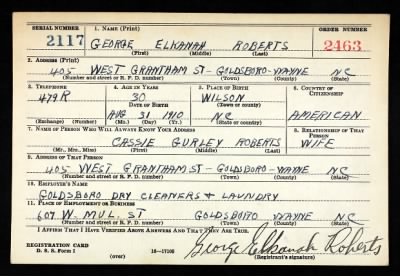 SERIAL NUMBER 1. NAME (Print) ORDER NUMBER
2117 GEORGE ELKANAH ROBERTS 2463
(First) (Middle) (Last)
2. ADDRESS (Print)
405 WEST GRANTHAM ST - GOLDSBORO - WAYNE NC
(Number and street or R. F. D. number) (Town) (County) (State)
3. TELEPHONE 4. AGE IN YEARS 5. PLACE OF BIRTH 6. COUNTRY OF CITIZENSHIP
479R 30 WILSON
DATE OF BIRTH (Town or county)
AUG 31 1910 NC AMERICAN
(Exchange) (Number) (Mo.) (Day) (Yr.) (State or country)
7. NAME OF PERSON WHO WILL ALWAYS KNOW YOUR ADDRESS 8. RELATIONSHIP OF THAT PERSON
CASSIE GURLEY ROBERTS WIFE
(Mr., Mrs., Miss) (First) (Middle) (Last)
9. ADDRESS OF THAT PERSON
405 WEST GRANTHAM ST - GOLDSBORO - WAYNE NC
(Number and street or R. F. D. number) (Town) (County) (State)
10. EMPLOYER'S NAME
GOLDSBORO DRY CLEANERS + LAUNDRY
11. PLACE OF EMPLOYMENT OR BUSINESS
607 W. MUL. ST GOLDSBORO WAYNE NC
(Number and street or R. F. D. number) (Town) (County) (State)
I AFFIRM THAT I HAVE VERIFIED ABOVE ANSWERS AND THAT THEY ARE TRUE.
REGISTRATION CARD George Elkanah Roberts
D. S. S. Form 1 16-17105 (Registrant's signature)
(over)